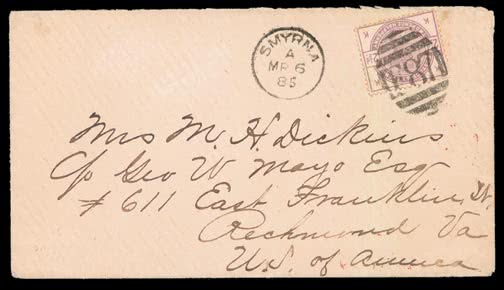 SMYRNA
A
MR 6
85
F87
Mrs M. H. Dickins.
c/o Geo W Mayo Esq
# 611 East Franklin, St,
Richmond Va
U.S. of America